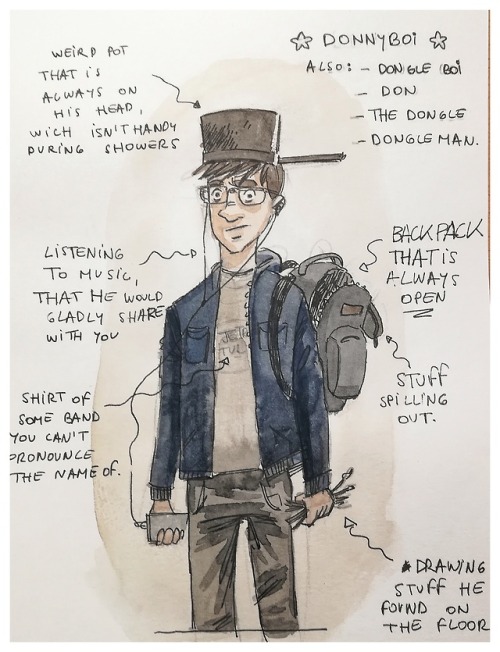 ☆ DONNYBOI ☆
ALSO: - DONGLE BOI
- DON
- THE DONGLE
- DONGLEMAN.
WEIRD POT
THAT iS
ALWAYS ON
HiS HEAD,
WiCH iSN'T HANDY
DURING SHOWERS
LiSTENING
TO MUSiC,
THAT HE WOULD
GLADLY SHARE
WiTH YOU
BACKPACK
THAT iS
ALWAYS
OPEN
STUFF
SPiLLiNG
OUT.
SHIRT OF
SOME BAND
YOU CAN'T
PRONOUNCE
THE NAME OF.
DRAWiNG
STUFF HE
FOUND ON
THE FLOOR